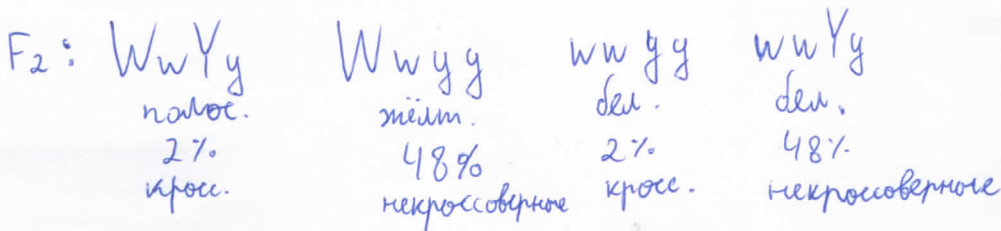 F₂: WwYy Wwyy wwyy wwYy
полос. жёлт. бел. бел.
2% 48% 2% 48%
кросс. некроссоверное кросс. некроссоверное